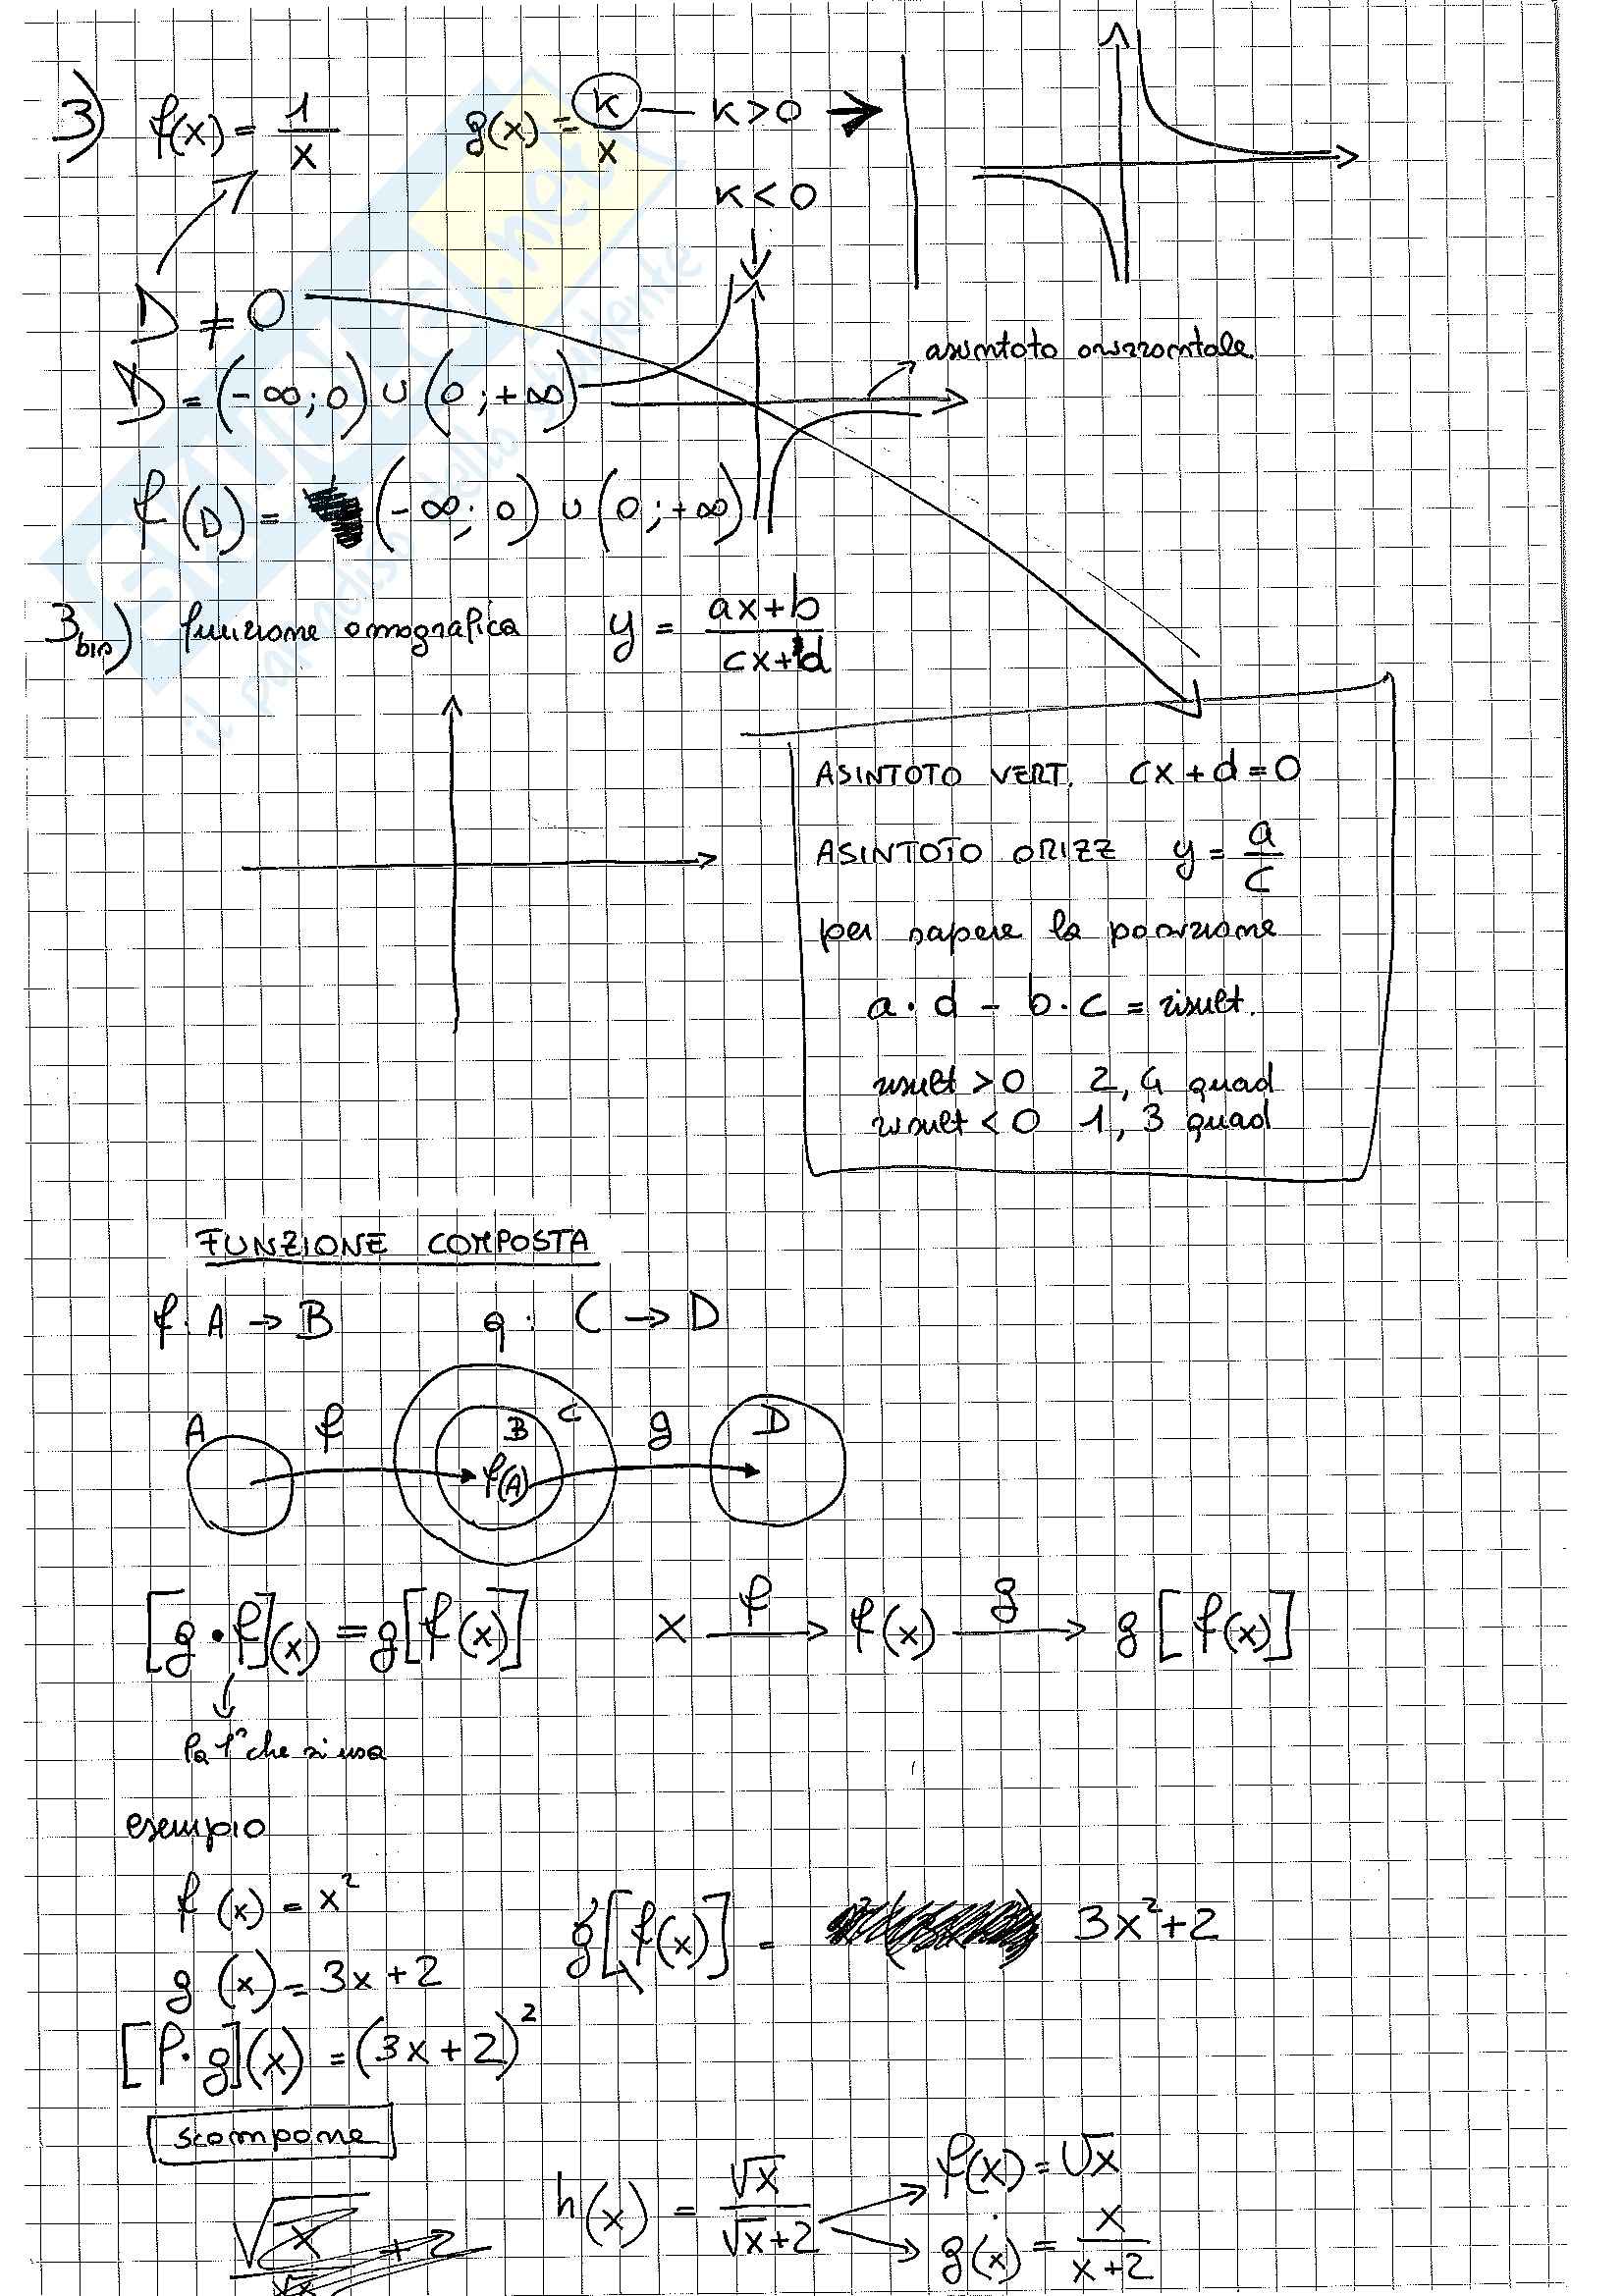 3) f(x) = 1/x g(x) = k/x k>0
k<0
D ≠ 0
asintoto orizzontale
D = (-∞; 0) ∪ (0; +∞)
f(D) = (-∞; 0) ∪ (0; +∞)
3bis) funzione omografica y = (ax+b)/(cx+d)
ASINTOTO VERT. cx+d=0
ASINTOTO ORIZZ y = a/c
per sapere la posizione
a·d - b·c = risult.
risult >0 2,4 quad
risult <0 1,3 quad
FUNZIONE COMPOSTA
f: A → B g: C → D
A f B C g D
f(A)
[g•f](x) = g[f(x)] x f→ f(x) g→ g[f(x)]
la 1ª che si usa
esempio
f(x) = x²
g[f(x)] = 3x²+2
g(x) = 3x+2
[f·g](x) = (3x+2)²
scompone
h(x) = √x/(√x+2) f(x) = √x
g(x) = x/(x+2)
SKUOLA.net
il paradiso dello studente